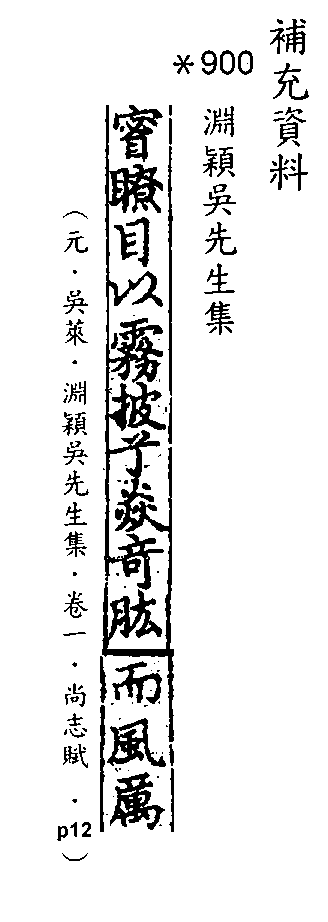 補充資料
*900
淵穎吳先生集
瞭目以霧披兮焱奇肱而風厲
（元．吳萊．淵穎吳先生集．卷一．尚志賦．p12）